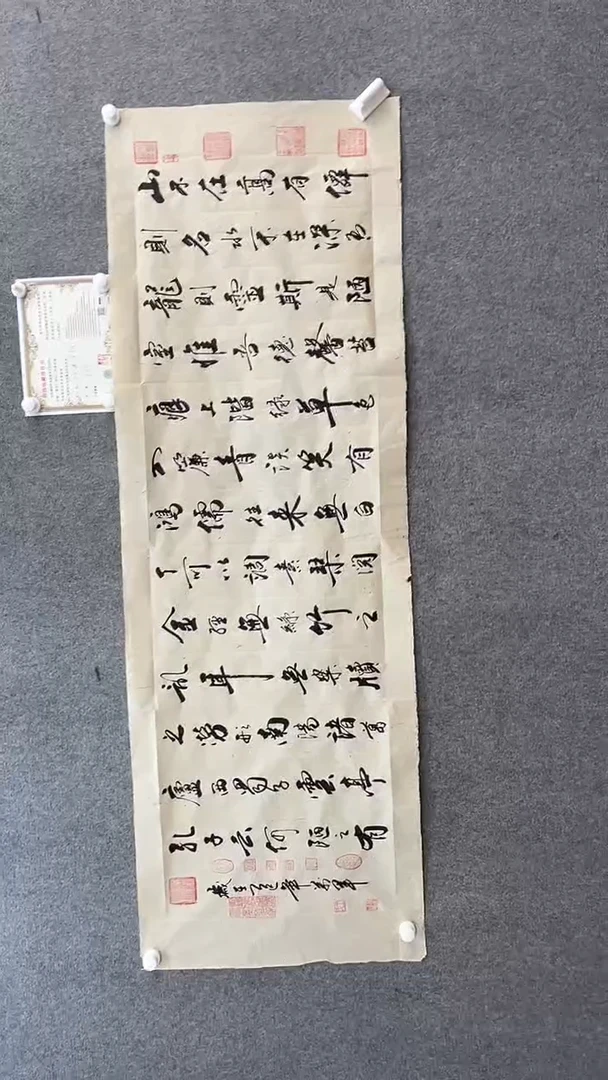 山不在高有僊
則名水不在深有
龍則靈斯是陋
室惟吾德馨苔
痕上階緑草色
入簾青談笑有
鴻儒往來無白
丁可以調素琴閱
金經無絲竹之
亂耳無案牘
之勞形南陽諸葛
廬西蜀子雲亭
孔子云何陋之有